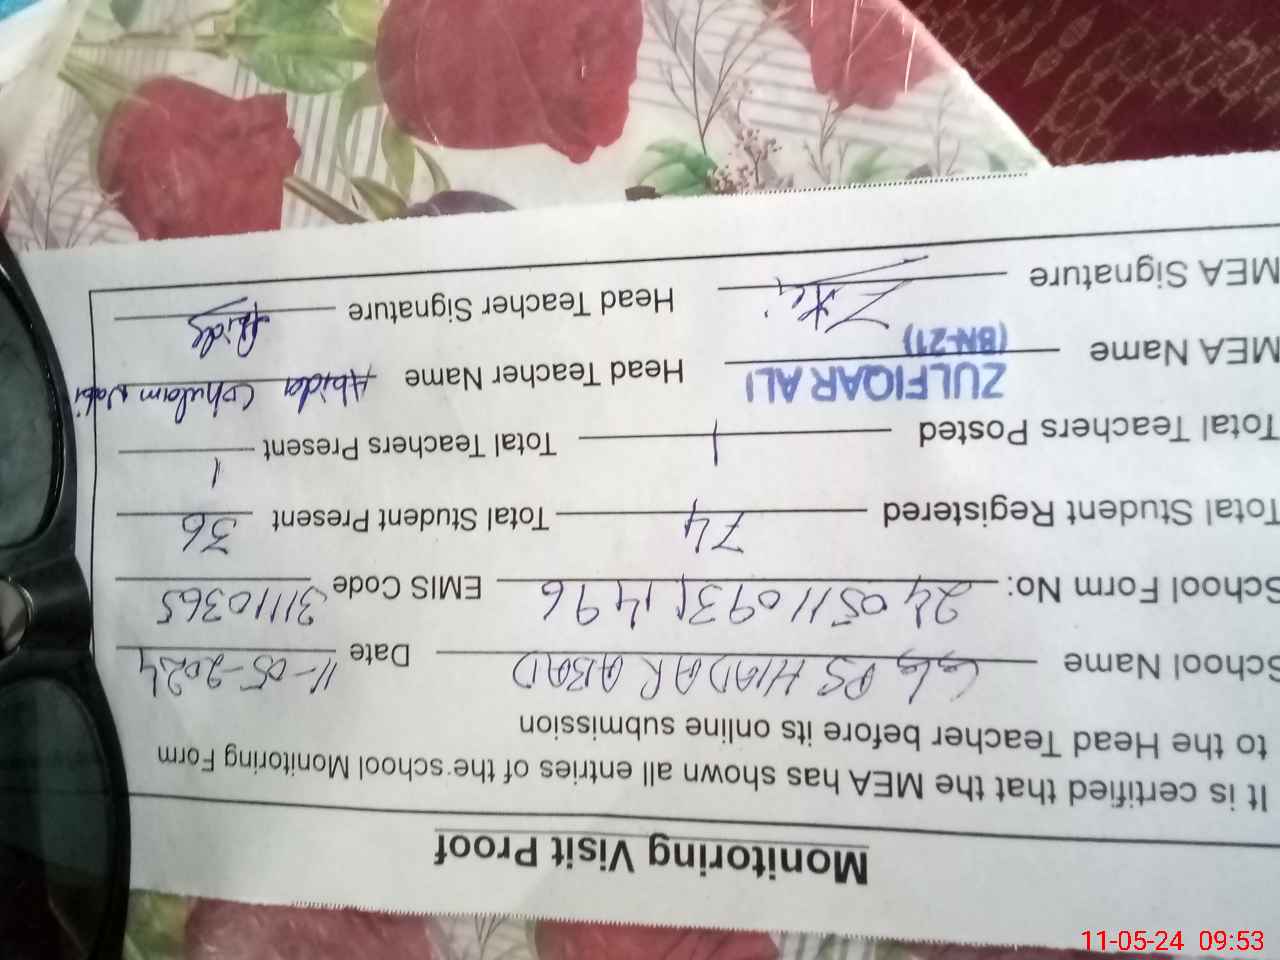 Monitoring Visit Proof
It is certified that the MEA has shown all entries of the school Monitoring Form
to the Head Teacher before its online submission
School Name PS HIADAR ABAD Date 11-05-2024
School Form No: EMIS Code 31110365
Total Student Registered 74 Total Student Present 36
Total Teachers Posted 1 Total Teachers Present 1
MEA Name ZULFIQAR ALI (BN-21) Head Teacher Name Abida Ghulam Nabi
MEA Signature Head Teacher Signature Abida
11-05-24 09:53